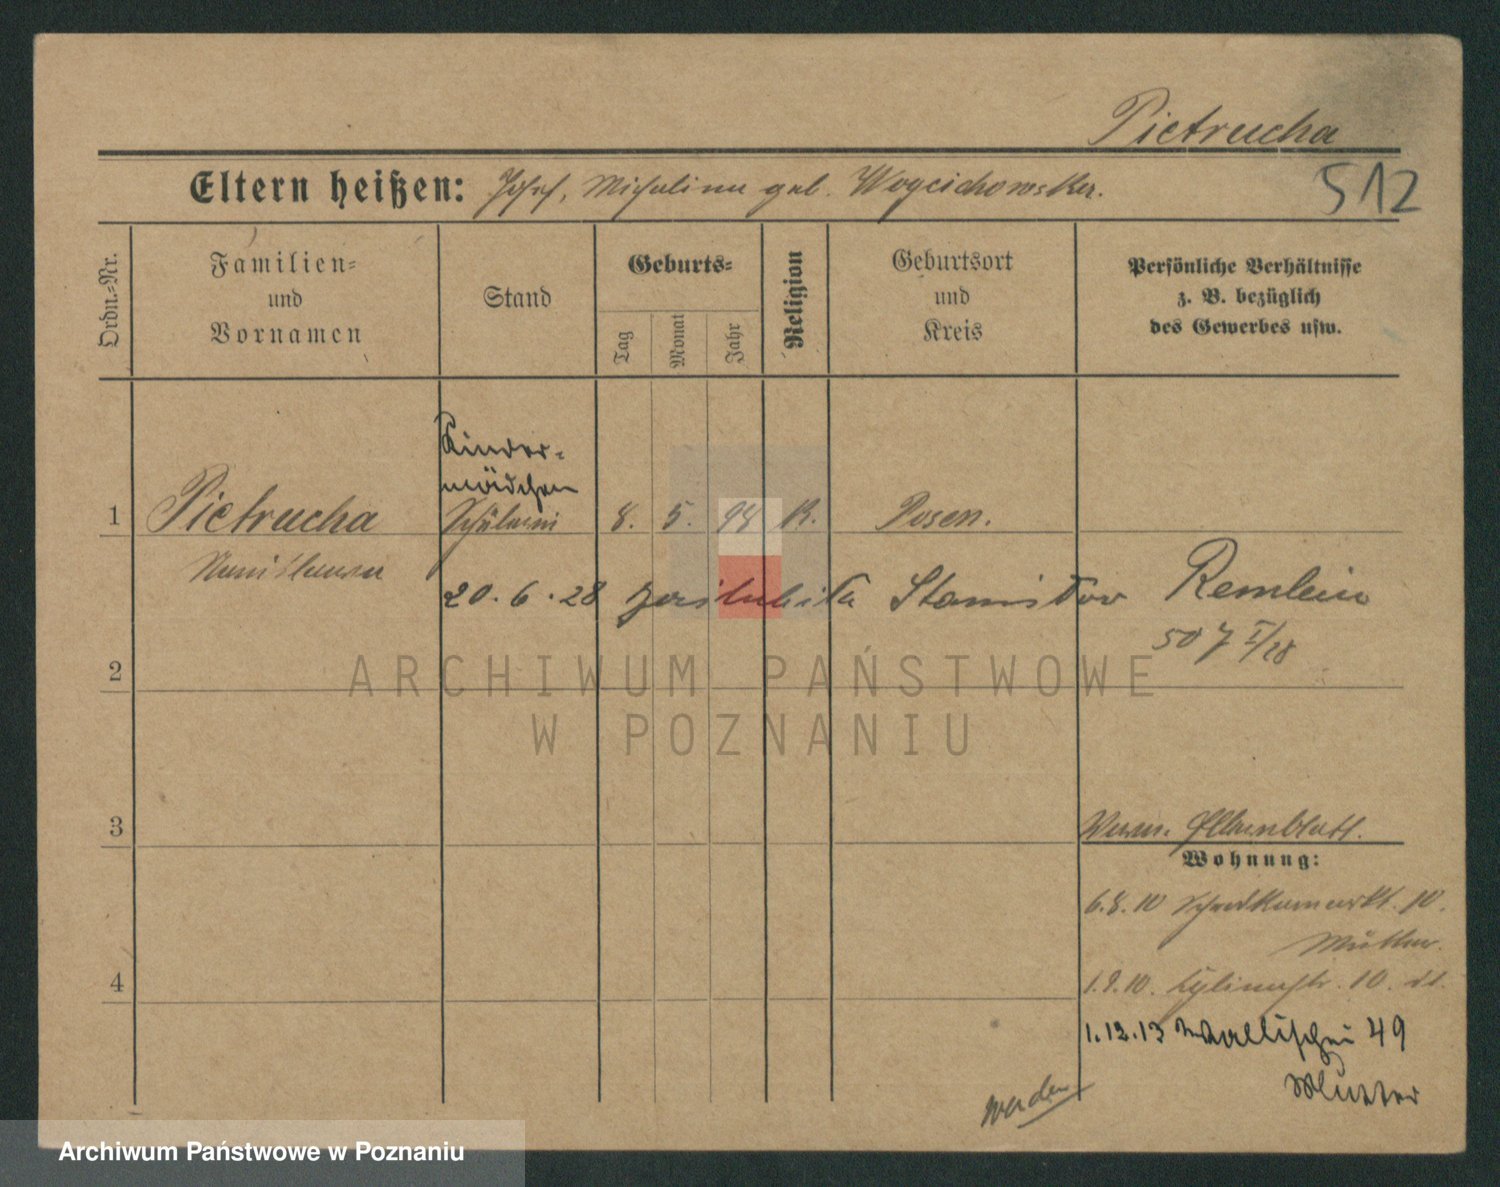 Pietrucha
Eltern heißen: Josef, Michalina geb. Woycichowska.
512
Ordn.-Nr.
Familien-
und
Vornamen
Stand
Geburts-
Tag
Monat
Jahr
Religion
Geburtsort
und
Kreis
Persönliche Verhältnisse
z. B. bezüglich
des Gewerbes usw.
Kinder-
mädchen
1 Pietrucha Schülerin 8. 5. 98 K. Posen.
20.6.28 Stanisław Remlein
507 I/28
2
ARCHIWUM PAŃSTWOWE
W POZNANIU
3
Elternblatt.
Wohnung:
6.8.10 10.
Mutter.
4
1.9.10. 10.
1.12.13 Wallischei 49
Mutter
Archiwum Państwowe w Poznaniu